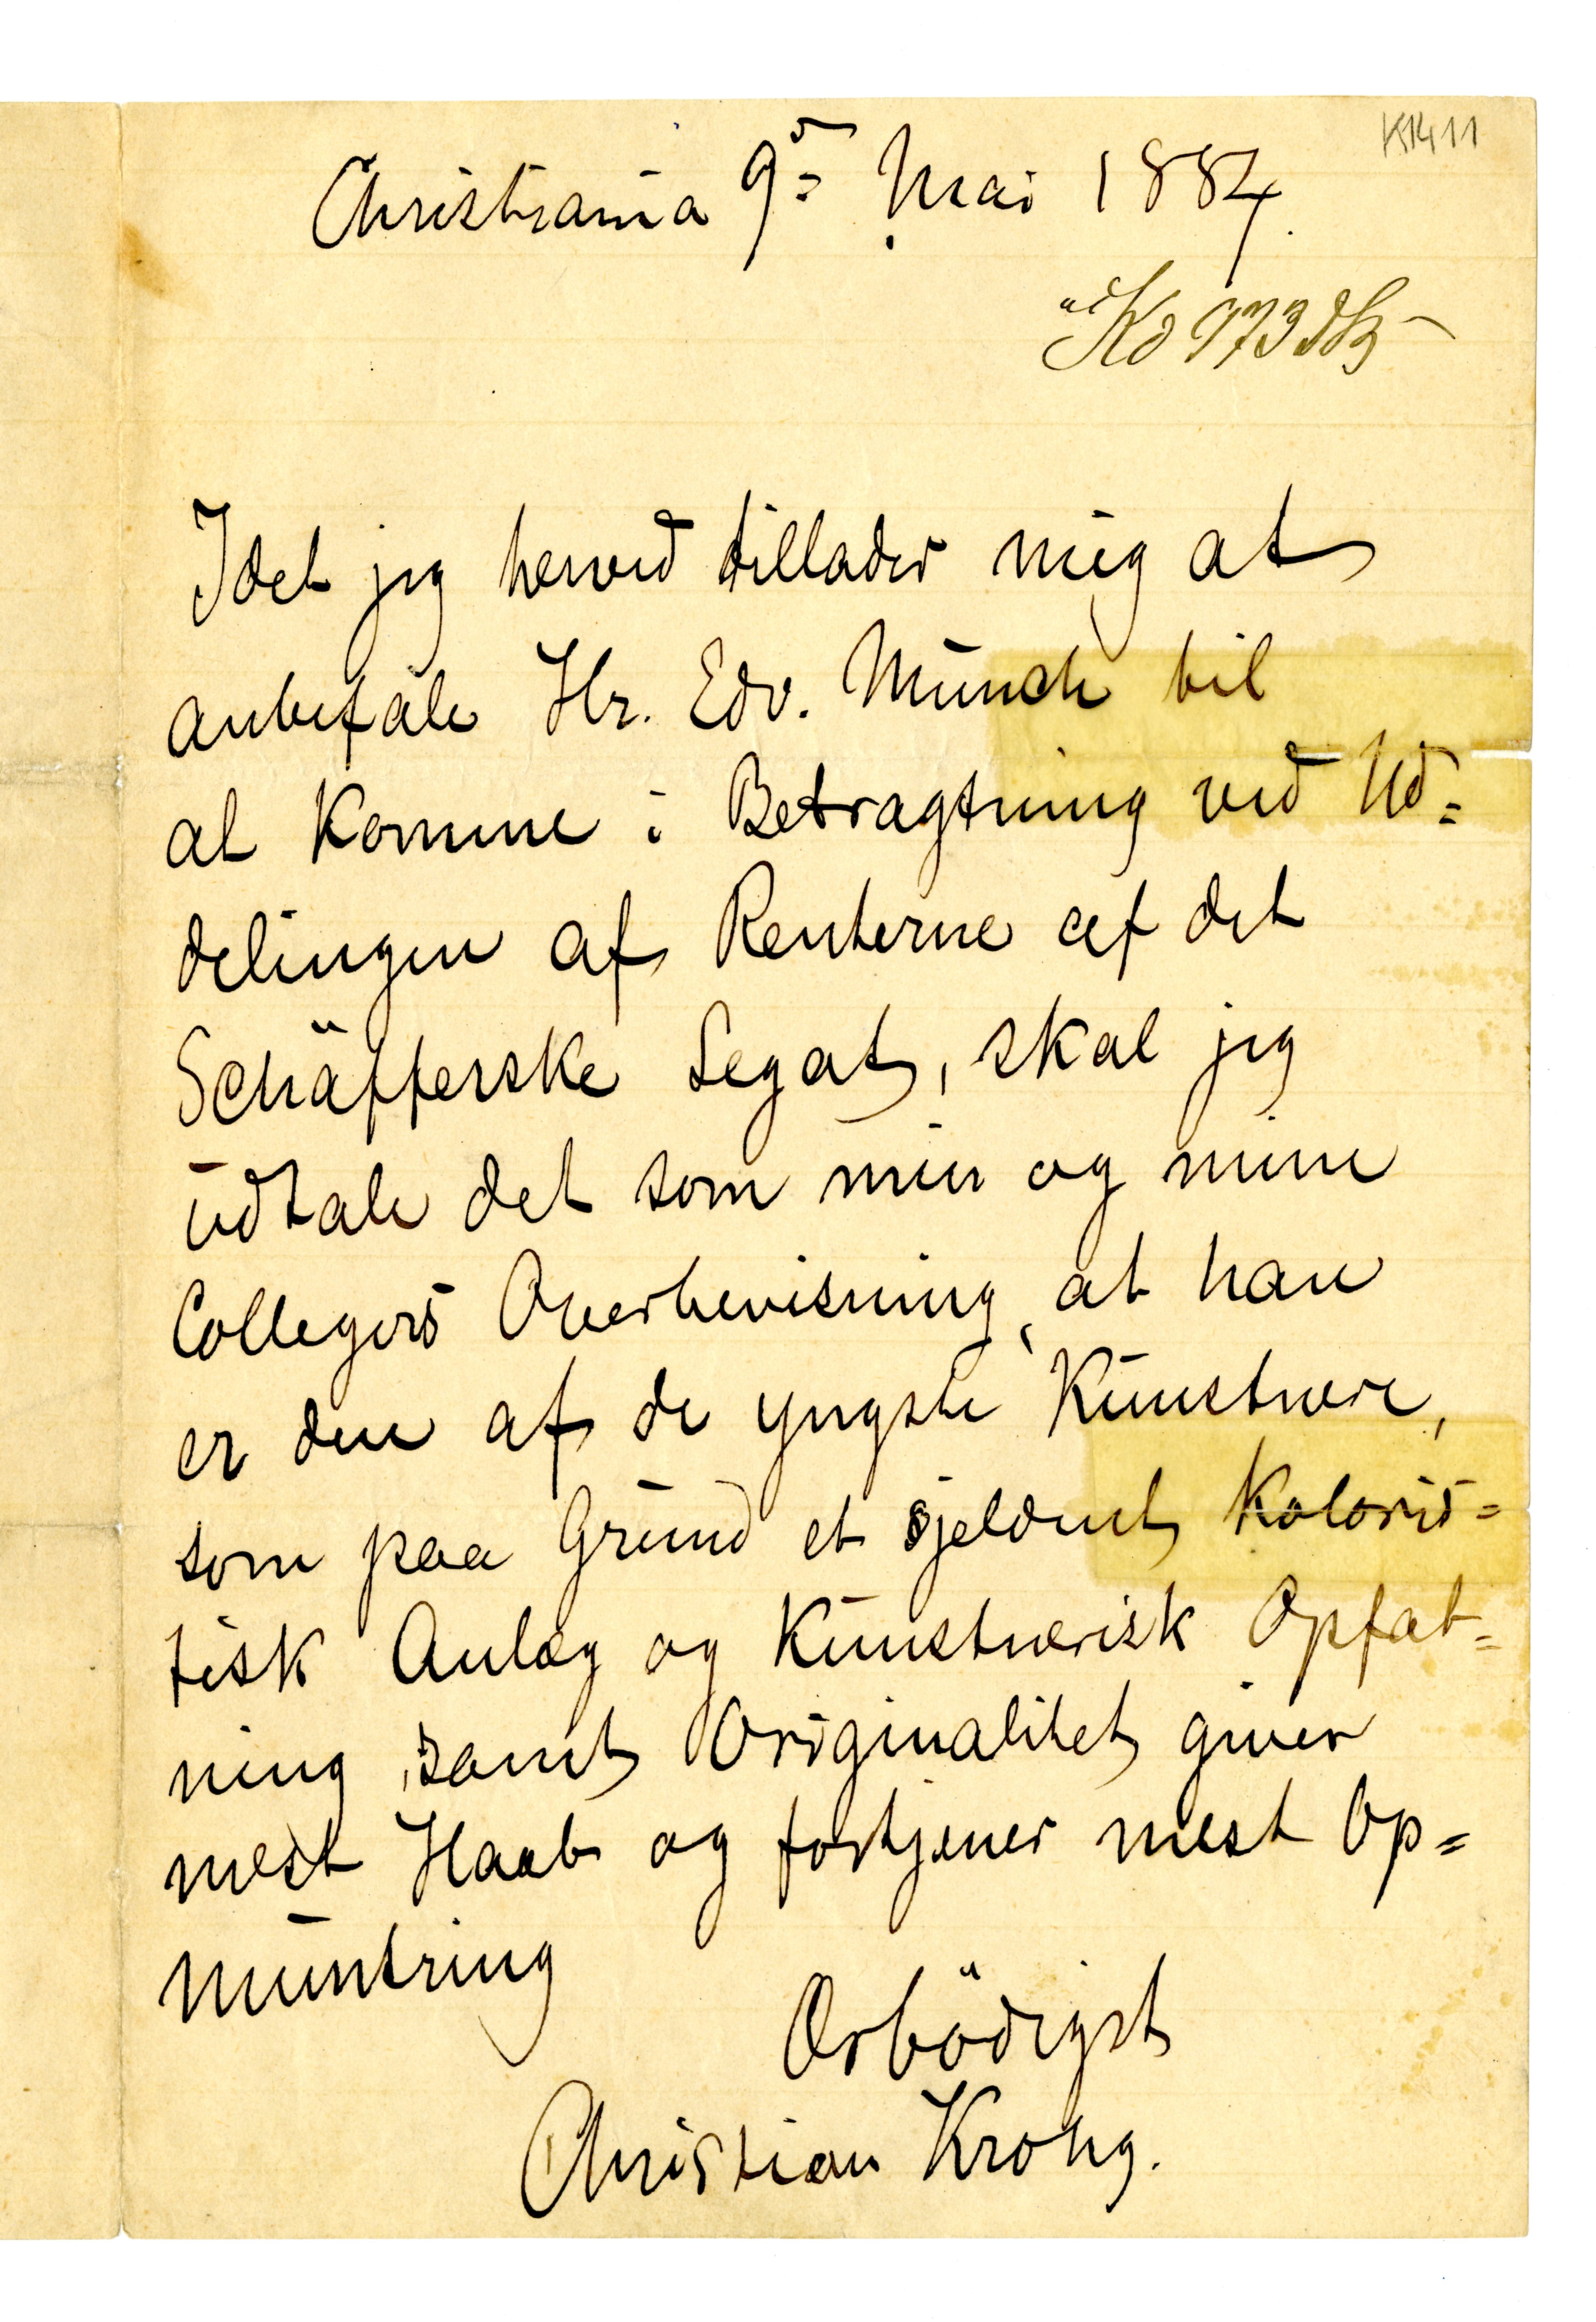 K1411
Christiania 9de Mai 1884.
ad Kd 973 
Idet jeg herved tillader mig at
anbefale Hr. Edv. Munch til
at komme i Betragtning ved Ud=
delingen af Renterne af det
Schäfferske Legat, skal jeg
udtale det som min og mine
Collegers Overbevisning, at han
er den af de yngste Kunstnere,
som paa Grund et sjeldent koloris=
tisk Anlæg og kunstnerisk Opfat=
ning samt Originalitet giver
mest Haab og fortjener mest Op=
muntring
Ærbödigst
Christian Krohg.